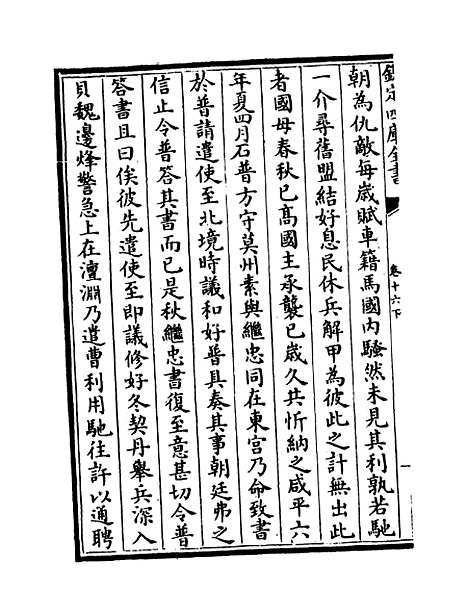 欽定四庫全書
卷十六下
朝為仇敵每嵗賦車籍馬國内騷然未見其利孰若馳
一介尋舊盟結好息民休兵解甲為彼此之計無出此
者國母春秋已髙國主承襲已嵗久共忻納之咸平六
年夏四月石普方守莫州素與繼忠同在東宫乃命致書
於普請遣使至北境時議和好普具奏其事朝廷弗之
信止令普答其書而已是秋繼忠書復至意甚切令普
答書且曰俟彼先遣使至即議修好冬契丹舉兵深入
貝魏邊烽警急上在澶淵乃遣曹利用馳往許以通聘